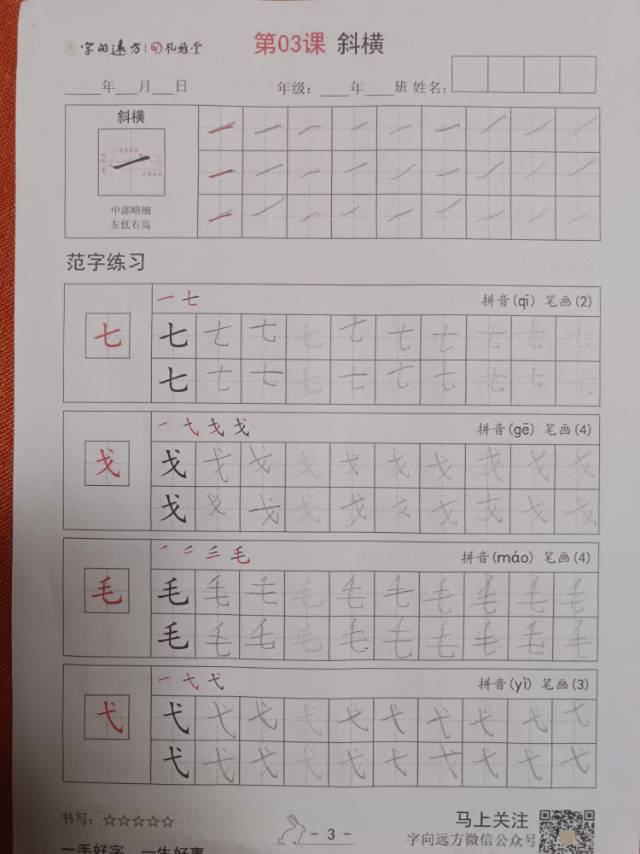 字向远方 孔雅堂
第03课 斜横
年 月 日 年级: 年 班 姓名:
斜横
中部略细
左低右高
范字练习
一 七 拼音(qī) 笔画(2)
七 七 七 七 七 七 七 七 七 七 七
七 七 七 七 七 七 七 七 七 七
拼音(gē) 笔画(4)
戈 戈 戈 戈 戈 戈 戈 戈 戈 戈 戈
戈 戈 戈 戈 戈 戈 戈 戈 戈 戈
毛 拼音(máo) 笔画(4)
毛 毛 毛 毛 毛 毛 毛 毛 毛 毛 毛
毛 毛 毛 毛 毛 毛 毛 毛 毛 毛
一 弋 弋 拼音(yì) 笔画(3)
弋 弋 弋 弋 弋 弋 弋 弋 弋 弋 弋
弋 弋 弋 弋 弋 弋 弋 弋 弋 弋
书写: ☆☆☆☆☆
- 3 -
马上关注
字向远方微信公众号
一手好字 一生好事